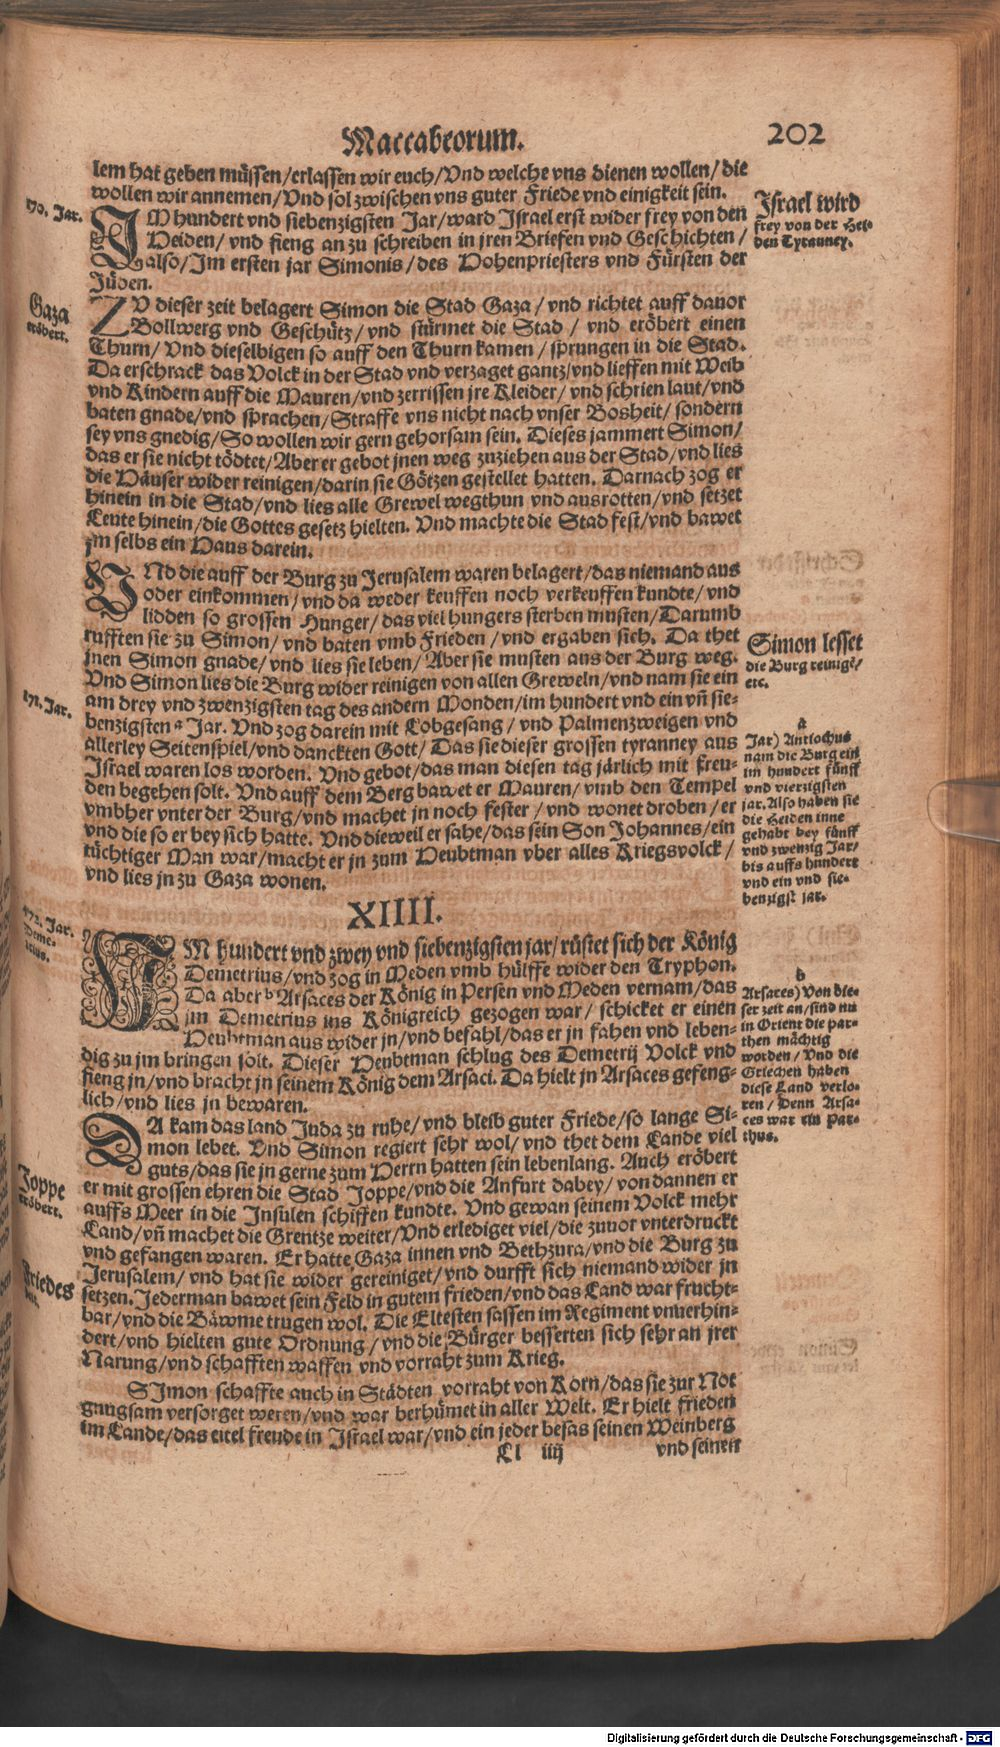 Maccabeorum. 202
lem hat geben müssen/erlassen wir euch/Vnd welche vns dienen wollen/die
wollen wir annemen/Vnd sol zwischen vns guter Friede vnd einigkeit sein.
170. Jar.
IM hundert vnd siebenzigsten Jar/ward Israel erst wider frey von den
Heiden/vnd fieng an zu schreiben in jren Briefen vnd Geschichten/
also/Im ersten jar Simonis/des Hohenpriesters vnd Fürsten der
Jüden.
Israel wird
frey von der Hei-
den Tyranney.
Gaza
eröbert.
ZV dieser zeit belagert Simon die Stad Gaza/vnd richtet auff dauor
Bollwerg vnd Geschütz/vnd stürmet die Stad/vnd eröbert einen
Thurn/Vnd dieselbigen so auff den Thurn kamen/sprungen in die Stad.
Da erschrack das Volck in der Stad vnd verzaget gantz/vnd lieffen mit Weib
vnd Kindern auff die Mauren/vnd zerrissen jre Kleider/vnd schrien laut/vnd
baten gnade/vnd sprachen/Straffe vns nicht nach vnser Bosheit/sondern
sey vns gnedig/So wollen wir gern gehorsam sein. Dieses jammert Simon/
das er sie nicht tödtet/Aber er gebot jnen weg zuziehen aus der Stad/vnd lies
die Häuser wider reinigen/darin sie Götzen gestellet hatten. Darnach zog er
hinein in die Stad/vnd lies alle Grewel wegthun vnd ausrotten/vnd setzet
Leute hinein/die Gottes gesetz hielten. Vnd machte die Stad fest/vnd bawet
jm selbs ein Haus darein.
VNd die auff der Burg zu Jerusalem waren belagert/das niemand aus
oder einkommen/vnd da weder keuffen noch verkeuffen kundte/vnd
lidden so grossen Hunger/das viel hungers sterben musten/Darumb
rufften sie zu Simon/vnd baten vmb Frieden/vnd ergaben sich. Da thet
jnen Simon gnade/vnd lies sie leben/Aber sie musten aus der Burg weg.
Vnd Simon lies die Burg wider reinigen von allen Greweln/vnd nam sie ein
am drey vnd zwenzigsten tag des andern Monden/im hundert vnd ein vñ sie-
benzigsten a Jar. Vnd zog darein mit Lobgesang/vnd Palmenzweigen vnd
allerley Seitenspiel/vnd danckten Gott/Das sie dieser grossen tyranney aus
Israel waren los worden. Vnd gebot/das man diesen tag järlich mit freu-
den begehen solt. Vnd auff dem Berg bawet er Mauren/vmb den Tempel
vmbher vnter der Burg/vnd machet jn noch fester/vnd wonet droben/er
vnd die so er bey sich hatte. Vnd dieweil er sahe/das sein Son Johannes/ein
tüchtiger Man war/macht er jn zum Heubtman vber alles Kriegsvolck/
vnd lies jn zu Gaza wonen.
Simon lesset
die Burg reinigē/
etc.
171. Jar.
a
Jar) Antiochus
nam die Burg ein
im hundert fünff
vnd vierzigsten
jar. Also haben sie
die Heiden inne
gehabt bey fünff
vnd zwenzig Jar/
bis auffs hundert
vnd ein vnd sie-
benzigst jar.
XIIII.
172. Jar.
Deme-
trius.
IM hundert vnd zwey vnd siebenzigsten jar/rüstet sich der König
Demetrius/vnd zog in Meden vmb hülffe wider den Tryphon.
Da aber b Arsaces der König in Persen vnd Meden vernam/das
jm Demetrius ins Königreich gezogen war/schicket er einen
Heubtman aus wider jn/vnd befahl/das er jn fahen vnd leben-
dig zu jm bringen solt. Dieser Heubtman schlug des Demetrij Volck vnd
fieng jn/vnd bracht jn seinem König dem Arsaci. Da hielt jn Arsaces gefeng-
lich/vnd lies jn bewaren.
b
Arsaces) Von die-
ser zeit an/sind nu
in Orient die par-
then mächtig
worden/Vnd die
Griechen haben
diese Land verlo-
ren/Denn Arsa-
ces war ein Par-
thus.
DA kam das land Juda zu ruhe/vnd bleib guter Friede/so lange Si-
mon lebet. Vnd Simon regiert sehr wol/vnd thet dem Lande viel
guts/das sie jn gerne zum Herrn hatten sein lebenlang. Auch eröbert
er mit grossen ehren die Stad Joppe/vnd die Anfurt dabey/von dannen er
auffs Meer in die Insulen schiffen kundte. Vnd gewan seinem Volck mehr
Land/vñ machet die Grentze weiter/Vnd erlediget viel/die zuuor vnterdruckt
vnd gefangen waren. Er hatte Gaza innen vnd Bethzura/vnd die Burg zu
Jerusalem/vnd hat sie wider gereiniget/vnd durfft sich niemand wider jn
setzen. Jederman bawet sein Feld in gutem frieden/vnd das Land war frucht-
bar/vnd die Bäwme trugen wol. Die Eltesten sassen im Regiment vnuerhin-
dert/vnd hielten gute Ordnung/vnd die Bürger besserten sich sehr an jrer
Narung/vnd schafften waffen vnd vorraht zum Krieg.
Joppe
eröbert.
Friedes
SImon schaffte auch in Städten vorraht von Korn/das sie zur Not
gnugsam versorget weren/vnd war berhümet in aller Welt. Er hielt frieden
im Lande/das eitel freude in Israel war/vnd ein jeder besas seinen Weinberg
Ll iiij vnd seinen
Digitalisierung gefördert durch die Deutsche Forschungsgemeinschaft - DFG